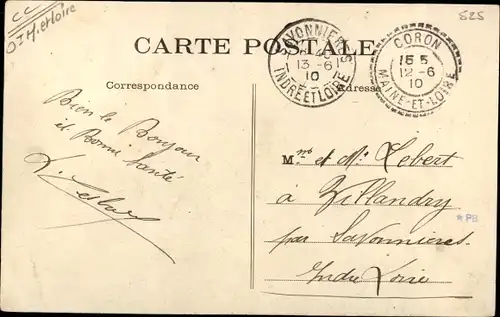 CC
Ct M. et Loire
525
CARTE POSTALE
SAVONNIERES
13 -6
10
INDRE ET LOIRE
CORON
15 5
12 -6
10
MAINE-ET-LOIRE
Correspondance
Adresse
Bien le Bonjour
et Bonne Santé
Mme et Mr Lebert
à Villandry
par Savonnières
Indre Loire
*PB